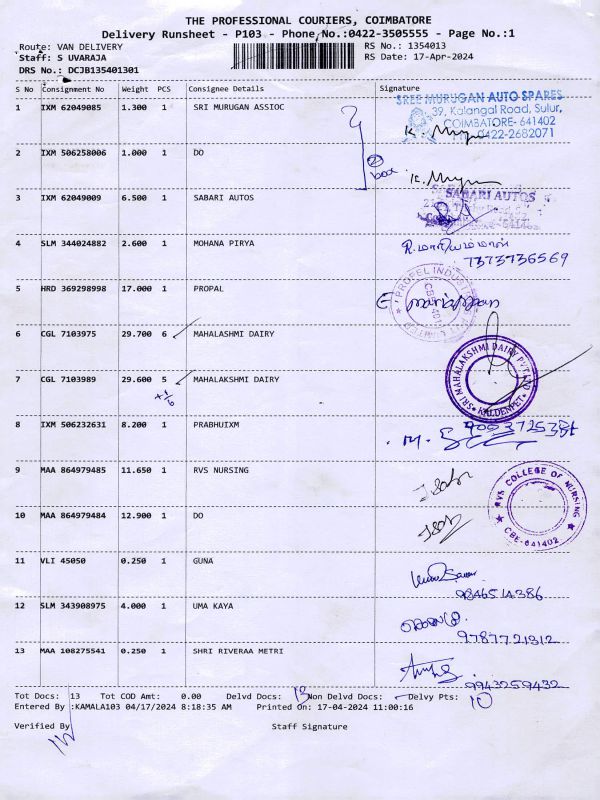 THE PROFESSIONAL COURIERS, COIMBATORE
Delivery Runsheet - P103 - Phone No.:0422-3505555 - Page No.:1
Route: VAN DELIVERY RS No.: 1354013
Staff: S UVARAJA RS Date: 17-Apr-2024
DRS No.: DCJB135401301
S No Consignment No Weight PCS Consignee Details Signature
SREE MURUGAN AUTO SPARES
39, Kalangal Road, Sulur,
COIMBATORE- 641402
0422-2682071
1 IXM 62049085 1.300 1 SRI MURUGAN ASSIOC
2 IXM 506258006 1.000 1 DO
2 box
3 IXM 62049009 6.500 1 SABARI AUTOS
SABARI AUTOS
4 SLM 344024882 2.600 1 MOHANA PIRYA
7373736569
5 HRD 369298998 17.000 1 PROPAL
PROFEL INDUSTR
6 CGL 7103975 29.700 6 MAHALASHMI DAIRY
SRI MAHALAKSHMI DAIRY PVT LTD
7 CGL 7103989 29.600 5 MAHALAKSHMI DAIRY
8 IXM 506232631 8.200 1 PRABHUIXM
9 MAA 864979485 11.650 1 RVS NURSING
RVS COLLEGE OF NURSING
CBE-641402
10 MAA 864979484 12.900 1 DO
11 VLI 45050 0.250 1 GUNA
9846514386
12 SLM 343908975 4.000 1 UMA KAYA
9787721312
13 MAA 108275541 0.250 1 SHRI RIVERAA METRI
9943259432
Tot Docs: 13 Tot COD Amt: 0.00 Delvd Docs: 13 Non Delvd Docs: - Delvy Pts: 10
Entered By :KAMALA103 04/17/2024 8:18:35 AM Printed On: 17-04-2024 11:00:16
Verified By Staff Signature